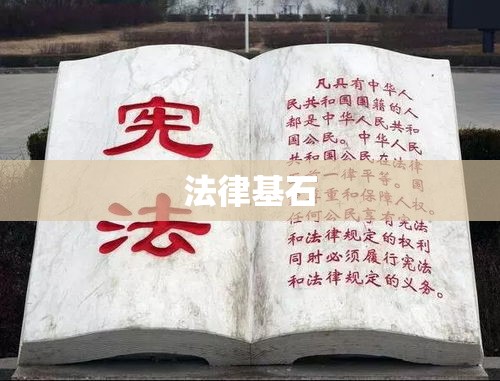 宪法
凡具有中华人
民共和国国籍的人
都是中华人民共和
国公民。中华人民
共和国公民在法律
一律平等。国
重和保障人权。
法律基石
任何公民享有宪法
和法律规定的权利
同时必须履行宪法
和法律规定的义务。